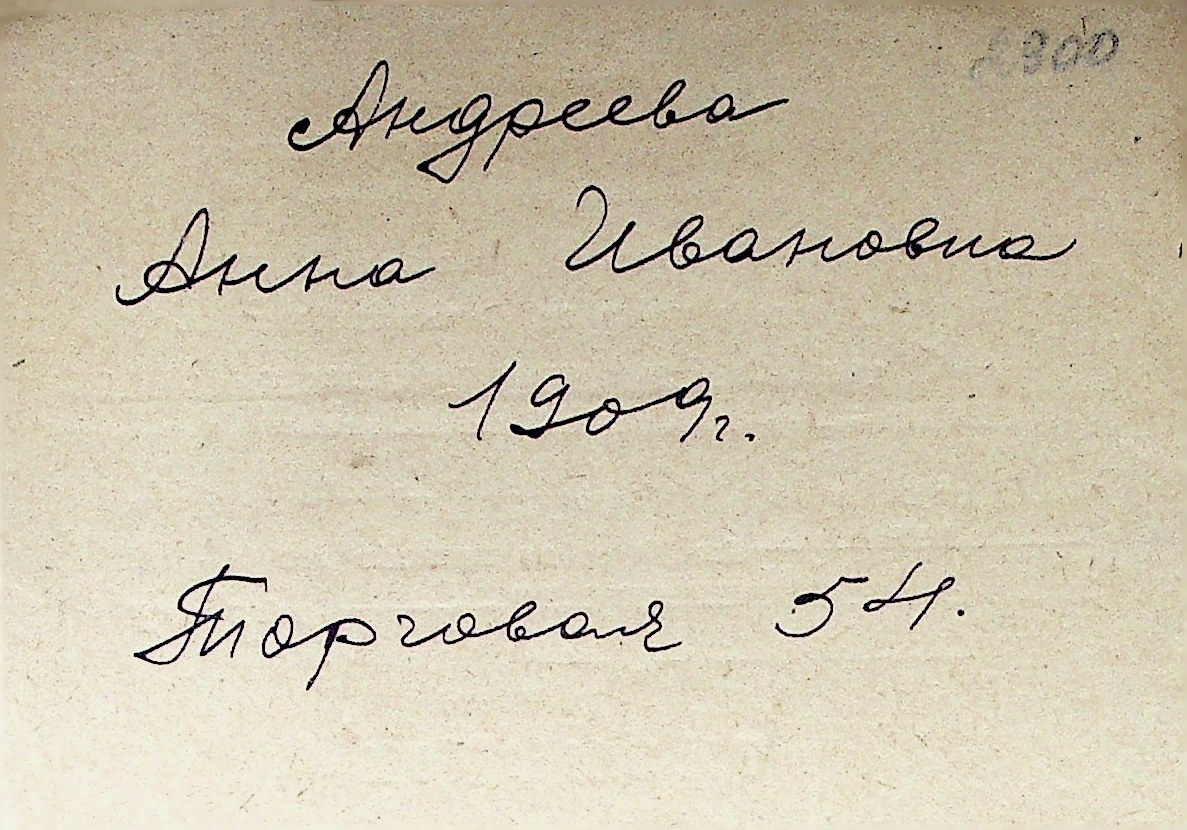 2900
Андреева
Анна Ивановна
1909г.
Торговая 54.